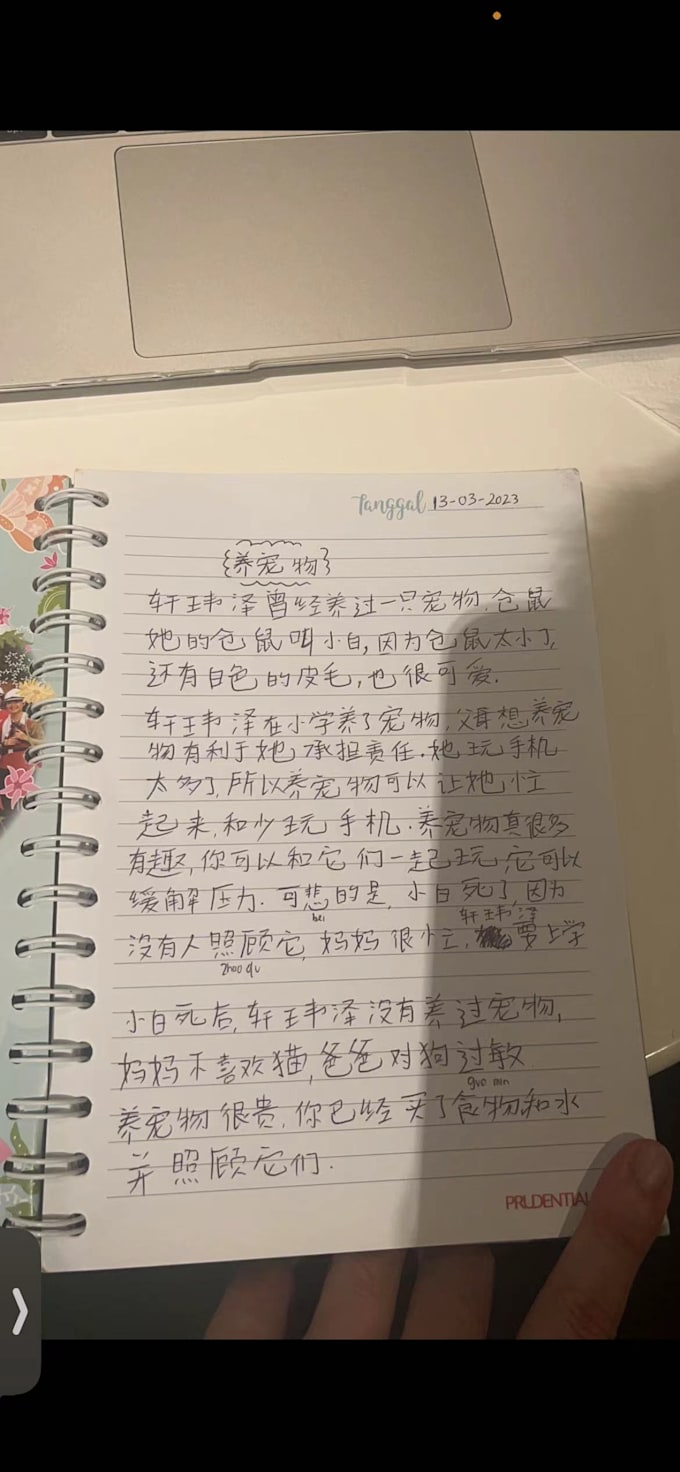 Tanggal 13-03-2023
{养宠物}
轩玮泽曾经养过一只宠物,仓鼠
她的仓鼠叫小白,因为仓鼠太小了,
还有白色的皮毛,也很可爱.
轩玮泽在小学养了宠物,父母想养宠
物有利于她承担责任.她玩手机
太多了,所以养宠物可以让她忙
起来,和少玩手机.养宠物真很多
有趣,你可以和它们一起玩,它可以
缓解压力.可悲的是,小白死了,因为
bei
轩玮泽
没有人照顾它,妈妈很忙,要上学
zhao gu
小白死后,轩玮泽没有养过宠物,
妈妈不喜欢猫,爸爸对狗过敏
guo min
养宠物很贵,你已经买了食物和水
并照顾它们.
PRUDENTIAL